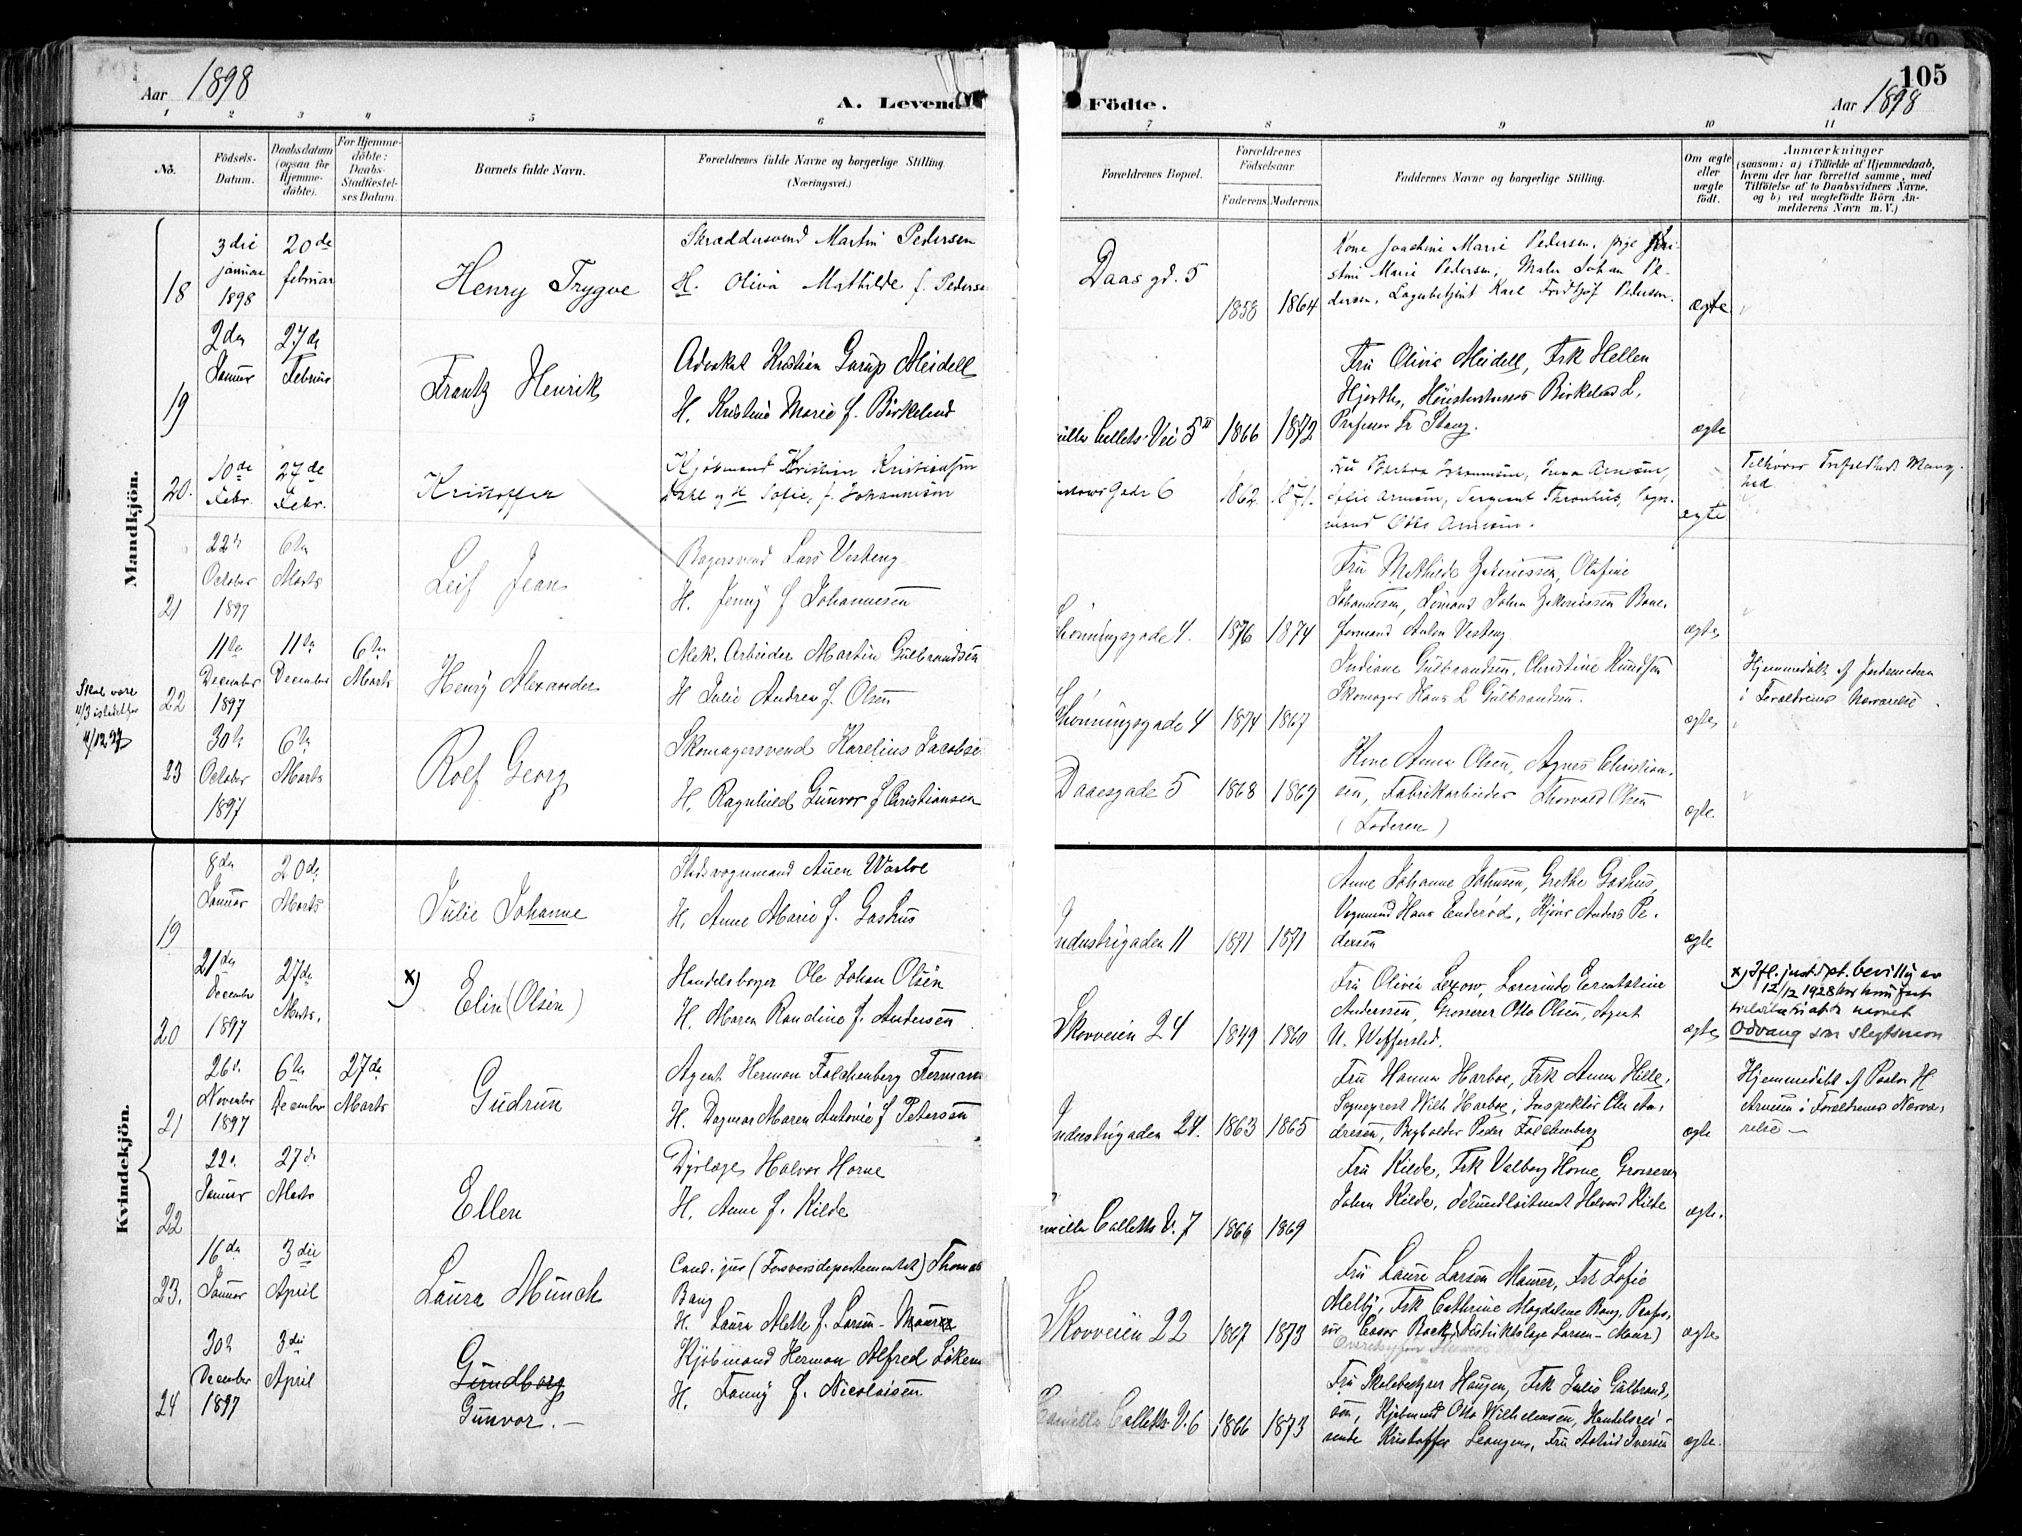 105
Aar 1898
A. Levende Födte.
Aar 1898
1 2 3 4 5 6 7 8 9 10 11
No.
Födsels-
Datum.
Daabsdatum
(ogsaa for
Hjemme-
döbte).
For Hjemme-
döbte:
Daabs-
Stadfæstel-
ses Datum.
Barnets fulde Navn.
Forældrenes fulde Navne og borgerlige Stilling.
(Næringsvei.)
Forældrenes Bopæl.
Forældrenes
Födselsaar.
Faderens. Moderens.
Faddernes Navne og borgerlige Stilling.
Om ægte
eller
uægte
født.
Anmærkninger
(saasom: a) i Tilfælde af Hjemmedaab,
hvem der har forrettet samme, med
Tilföielse af to Daabsvidners Navne.
og b) ved uægtefödte Börn An-
melderens Navn m. V.)
Mandkjön.
18
3die
januar
1898
20de
februar
Henry Trygve
Skræddersvend Martin Pedersen
H. Oliva Mathilde f. Pederse
Daas gd. 5
1858 1864
Kone Joachine Marie Pedersen, pige Kri-
stine Marie Pedersen, Maler Johan Pe-
dersen, Lagerbetjent Karl Fridtjof Pedersen.
ægte
19
2den
Januar
27de
Februar
Frantz Henrik
Advokat Kristian Garup Meidell
H. Kristine Marie f. Birkeland
milla Colletts Vei 5 II
1866 1872
Fru Olivia Meidell, Frk Hellen
Hjorth, Birkeland
Professor Fr Stang.
ægte
20.
10de
Febr.
27de
Febr.
Kristoffer
Kjøbmand Kristian Kristiansen
Dahl og H Sofie, f. Johannesen
Gade 6
1862
Sergeant
mand
ægte
Tilhører Trefoldigheds Menig-
hed
21
22de
October
1897
6te
Marts
Leif Jean
Bagersvend Lars Vesteng
H. Jenny f Johannesen
Schønningsgade 4.
1876 1874
Fru Mathilde Zakariassen, Olafine
Johannesen, Sømand Johan Zakariassen
formand Anton Vesteng
ægte
Skal være
11/3 istedetfor
11/12 97
22
11te
December
1897
11te
December
6te
Marts
Henry Alexander
Mek. Arbeider Martin Gulbrandsen
H Julie Andrea f. Olsen
Schønningsgade 4
1874 1867
Indiane Gulbrandsen, Christine Knudsen
Skomager Hans L Gulbrandsen.
ægte
Hjemmedøbt af Jordemoderen
i Forældrenes Nærværelse.
23
30te
October
1897
6te
Marts
Rolf Georg
Skomagersvend Karelius Jacobse
H. Ragnhild Gunvor f Christiansen
Daaesgade 5
1868 1869
Kone Anna Olsen, Agnes Christian-
sen, Fabrikarbeider Thorvald Olsen
(Faderen)
ægte.
Kvindekjön.
19
8de
Januar
20de
Marts
Julie Johanne
H. Anne Marie f. Gashus
Industrigaden 11
1871 1871
Anne Johanne Johnsen, Grethe Gashus,
Vognmand Hans Enderød, Kjører Anders Pe-
dersen
ægte
20
21de
December
1897
27de
Marts.
x)
Elin (Olsen)
Handelsborger Ole Johan Olsen
H. Maren Randine f. Andersen
Skovveien 24
1849 1860
Fru Olivia Lexow, Lærerinde Erntstine
Anderssen, Grosserer Otto Olsen, Agent
ægte
x) Ifl. just.dpt. bevillg av
12/12 1928 har hun fått
navnet
Odvang som slegtsnavn
21
26de
November
1897
6te
December
27de
Marts
Gudrun
Agent Herman Falchenberg
H. Dagmar Maren Antonie f Petersen
Industrigaden 24.
1863 1865
Fru Hanna Harboe, Frk Anna Hille,
Sogneprest Wilh Harboe, Inspektør Chr An-
dresen, Bogholder Peder Falchenberg
ægte
Hjemmedøbt af Pastor H
Arnesen i Forældrenes Nærvæ-
relse —
22
22de
Januar
27de
Marts
Ellen
Dyrlæge Halvor Horne
H. Anne f. Kilde
amilla Colletts V. 7
1866 1869
Fru Kilde, Frk Valborg Horne, Grosserer
Johan Kilde, Sekondløitnant Halvord Kilde
ægte.
23.
16de
Januar
3die
April
Laura Munch
Cand. jur (Forsvarsdepartementet) Thomas
Bang
H. Laura Mette f. Larsen-Maurer
Skovveien 22
1867 1873
Fru Laura Larsen Maurer, Frk Sofie
Melby, Frk Cathrine Magdalene Bang, Profes-
sor Cæsar Boeck, Distriktslæge Larsen-Maur)
ægte
24
30te
December
1897
3die
April
Gundborg
Gunvor. —
Kjøbmand Herman Alfred Løken
H. Fanny f. Nicolaisen
Camilla Colletts V. 6
1866 1873
Fru Skolebestyrer Haugen, Frk Julie Gulbrand-
sen, Kjøbmand Otto Wilhelmsen, Handelsrei-
sende Kristoffer Leangen, Fru Astrid Iversen
ægte.